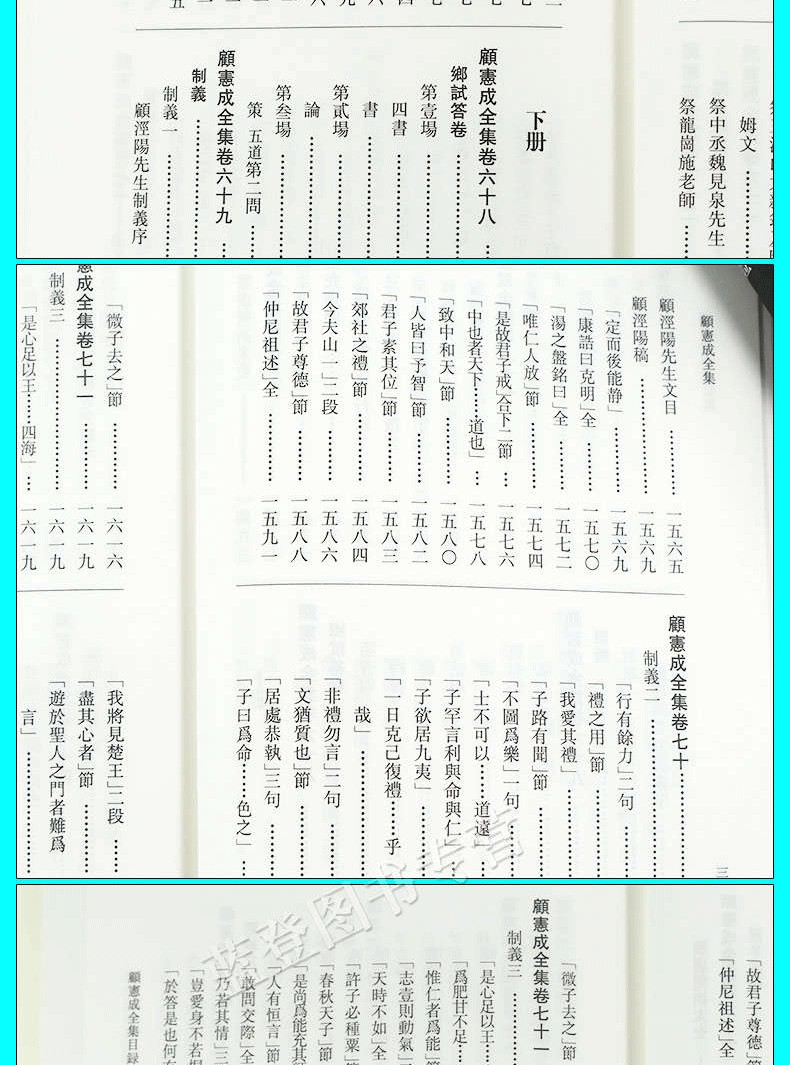 姆文……………
祭中丞魏見泉先生
祭龍崗施老師……
下册
顧憲成全集卷六十八…
鄉試答卷……………
第壹場……………
四書……………
書……………
第貳場……………
論……………
第叁場……………
策 五道第二問……
顧憲成全集卷六十九…
制義……………
制義一……………
顧涇陽先生制義序
顧憲成全集
顧涇陽先生文目……………一五六五
顧涇陽稿……………一五六九
「定而後能静」……………一五六九
「康誥曰克明」全……………一五七〇
「湯之盤銘曰」全……………一五七二
「唯仁人放」節……………一五七四
「是故君子戒」合下二節……一五七六
「中也者天下……道也」…一五七八
「致中和天」節……………一五八〇
「人皆曰予智」節……………一五八二
「君子素其位」節……………一五八三
「郊社之禮」節……………一五八四
「今夫山一」二段……………一五八六
「故君子尊德」節……………一五八八
「仲尼祖述」全……………一五九一
顧憲成全集卷七十……………
制義二……………
「行有餘力」二句……………
「禮之用」節……………
「我愛其禮」……………
「子路有聞」節……………
「不圖爲樂」一句……………
「士不可以……道遠」……
「子罕言利與命與仁」……
「子欲居九夷」……………
「一日克己復禮……乎
哉」……………
「非禮勿言」二句……………
「文猶質也」節……………
「居處恭執」三句……………
「子曰爲命……色之」…
三
「微子去之」節……………一六一六
憲成全集卷七十一……………一六一九
制義三……………一六一九
「是心足以王……四海」…一六一九
「我將見楚王」二段……
「盡其心者」節……………
「遊於聖人之門者難爲
言」……………
「故君子尊德」節
「仲尼祖述」全……
「微子去之」節
顧憲成全集卷七十一
制義三……………
「是心足以王……
「爲肥甘不足……
「惟仁者爲能」節
「志壹則動氣」
「天時不如」全
「許子必種粟」
「春秋天子」節
是尚爲能充其
「人有恒言」節
「敢問交際」全
「乃若其情」三
「豈愛身不若
「於答是也何有
顧憲成全集目録
蓝登图书专营